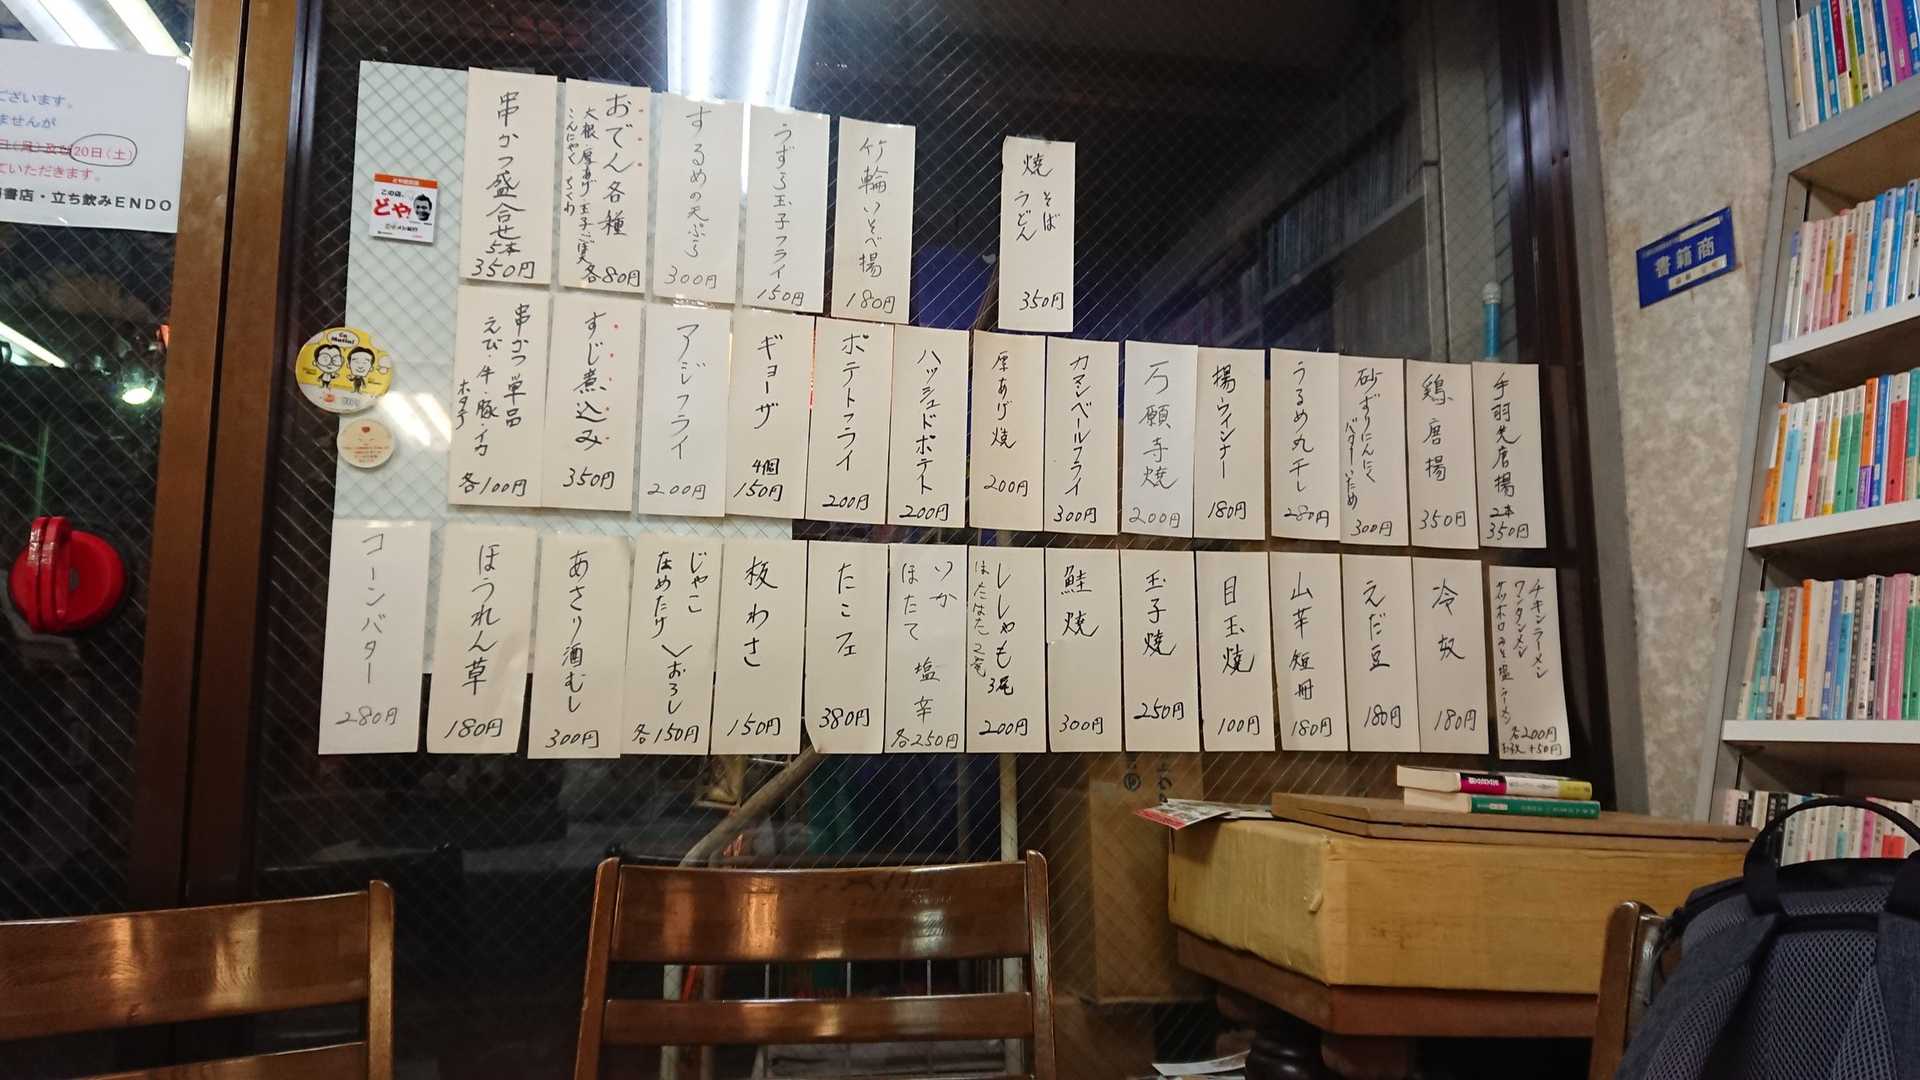 ございます。
ませんが
20日(土)
ていただきます。
書店・立ち飲みENDO
この店、
どや!
串かつ盛合せ
5本
350円
おでん各種
大根・厚あげ・玉子
こんにゃく ちくわ
各80円
するめの天ぷら
300円
うずら玉子フライ
150円
竹輪いそべ揚
180円
焼 そば
うどん
350円
串かつ単品
えび・牛・豚・イカ
ホタテ
各100円
すじ煮込み
350円
アジフライ
200円
ギョーザ
4個
150円
ポテトフライ
200円
ハッシュドポテト
200円
厚あげ焼
200円
カマンベールフライ
300円
万願寺焼
200円
揚ウィンナー
180円
うるめ丸干し
280円
砂ずりにんにく
バターいため
300円
鶏唐揚
350円
手羽先唐揚
2本
350円
コーンバター
280円
ほうれん草
180円
あさり酒むし
300円
じゃこ
なめたけ
おろし
各150円
板わさ
150円
たこフェ
380円
いか
ほたて
塩辛
各250円
ししゃも
3尾
はたはた2尾
200円
鮭焼
300円
玉子焼
250円
目玉焼
100円
山芋短冊
180円
えだ豆
180円
冷奴
180円
チキンラーメン
ワンタンメン
サッポロみそ塩ラーメン
各200円
+50円
書籍商